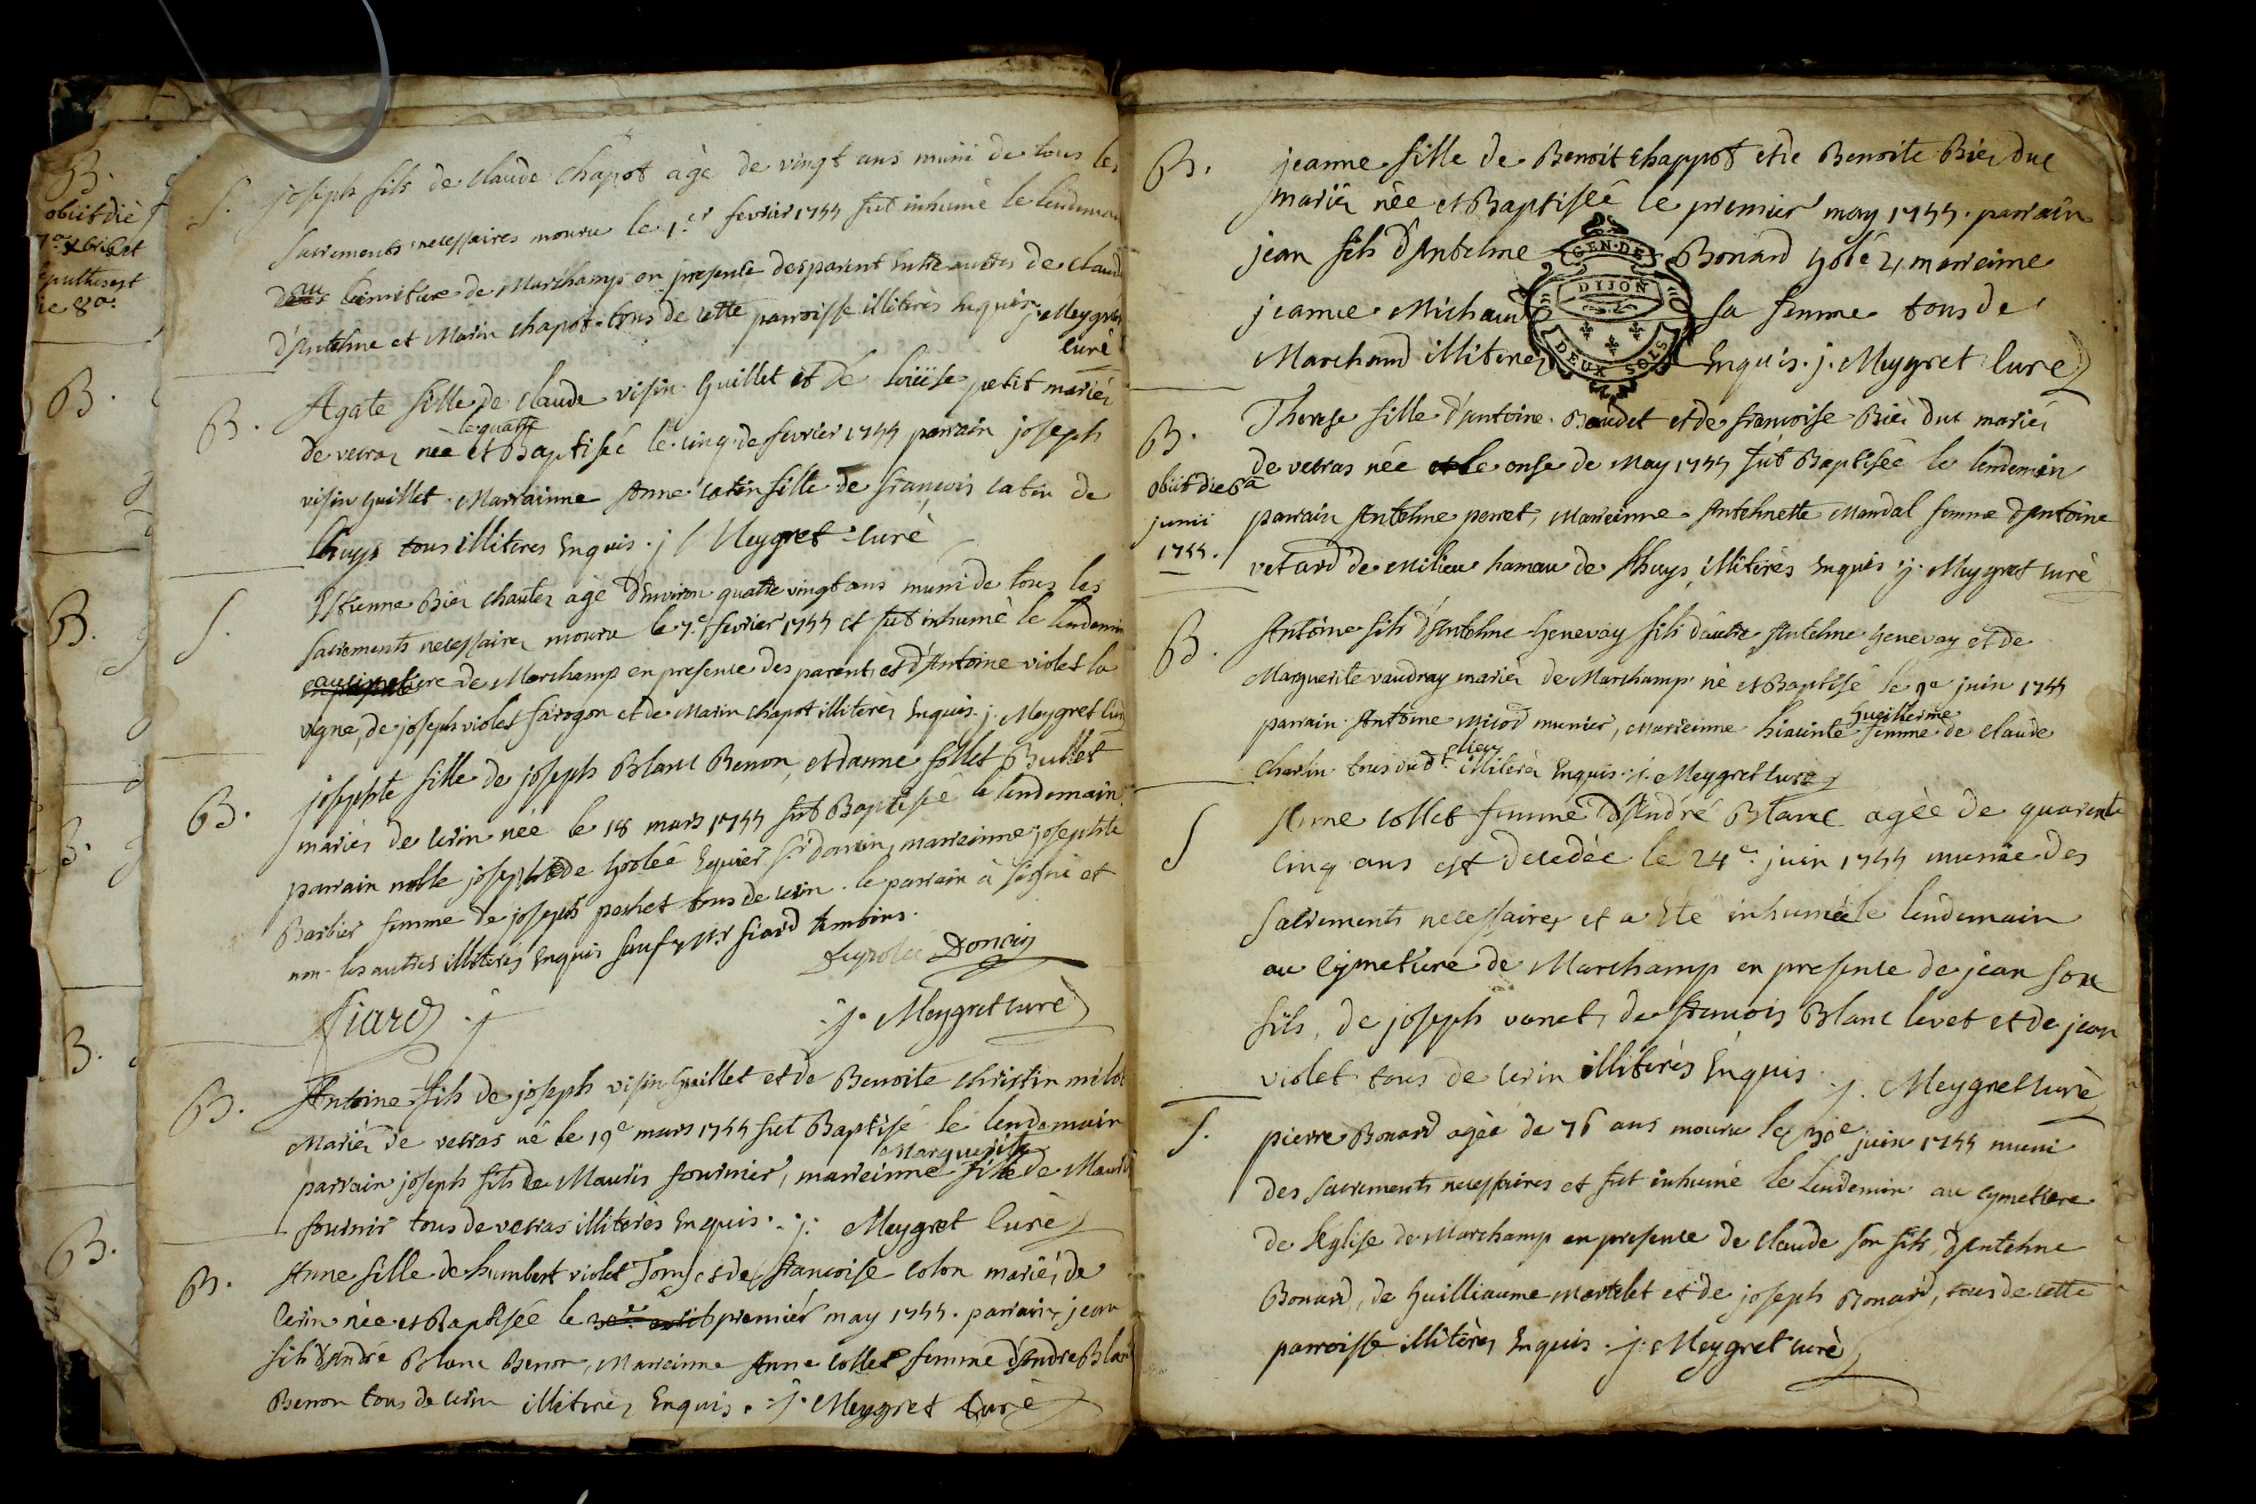 B.
obiit die
sepultus est
die 8a.
B.
B.
B.
B.
B.
S. joseph fils de claude chapot àgè de vingt ans muni de tous les
sacrements necessaires mouru le 1.er fevrier 1755 fut inhumè le lendemain
au cimitiere de Marchamp en presence des parent entre autres de claude
d'Antelme et Marin chapot tous de cette parroisse illiterès enquis j. Meygret
curè
B. Agate fille de claude visin Guillet et de loüise petit mariés
le quatre
de vecras née et Baptisée le cinq de fevrier 1755 parrain joseph
visin Guillet. Marrainne Anne catin fille de francois catin de
lhuys tous illiteres enquis. j Meygret curè
S. Etienne Bier chautez agè d'environ quatre vingt ans muni de tous les
sacrements necessaires mouru le 7.e fevrier 1755 et fut inhumè le lendemain
au cimetiere de Marchamp en presence des parents et d'Antoine violet la
vigne, de joseph violet farogon et de Marin chapot illiterès enquis. j. Meygret curè
B. josephte fille de joseph Blanc Benon, et d'anne follet Bullet
mariés de cerin née le 18 mars 1755 fut Baptisée le lendemain
parrain noble joseph de Gyolée Equier s.r doncin, marreinne josephte
Barbier femme de joseph pochet tous de cerin. le parrain à signè et
non les autres illiterés enquis sauf Mr. fiard temoins.
Doncin
fiard . j
j. Meygret curè
B. Antoine fils de joseph visin Guillet et de Benoite christin milot
Mariés de vecras né le 19e mars 1755 fut Baptisé le lendemain
Marguerite
parrain joseph fils de Mauris fournier, marreinne fille de Mauris
fournir tous de vecras illiterès enquis. j. Meygret Curè
B. Anne fille de humbert violet Tomj et de francoise colon mariés de
Cerin née et Baptisée le 30e avril premier may 1755. parrain jean
fils d'André Blanc Benon, Marreinne Anne Collet femme d'André Blanc
Benon tous de cerin illiterès enquis. j. Meygret Curè
B. jeanne fille de Benoit chappot et de Benoite Bier duc
mariés née et Baptisée le premier may 1755. parrain
jean fils d'Antelme Bonard Golé & marreine
jeanne Michaud sa femme tous de
Marchamp illiteres enquis. j. Meygret Curè
GEN. DE
DIJON
DEUX SOLS
B. Therese fille d'antoine Baudet et de francoise Bier duc mariés
obiit die 6a
junii
1755.
de vecras née et le onse de May 1755 fut Baptisée le lendemain
parrain Antelme perret, Marreinne Antelmette Mandal femme d'Antoine
vetard de Milieu hamau de Lhuys, illiterès enquis. j. Meygret curè
B. Antoine fils d'Antelme Genevay fils d'autre Antelme Genevay et de
Marguerite vaudray mariés de Marchamp nè et Baptisé le 9e juin 1755
Guilherme
parrain Antoine Micod munier, Marreinne hiacinte femme de claude
lieu
charlin tous dud.t illiterès enquis. j. Meygret curè
S Anne collet femme d'André Blanc agèe de quarente
cinq ans est decedèe le 24e. juin 1755 munie des
sacrements necessaires et a etè inhumée le lendemain
au Cymetiere de Marchamp en presence de jean son
fils, de joseph vanet, de francois Blanc levet et de jean
violet tous de cerin illiterès enquis. j. Meygret curè
S. pierre Bonard agèe de 76 ans mouru le 30e juin 1755 muni
des sacrements necessaires et fut inhumé le lendemin au cymetiere
de l'eglise de Marchamp en presence de claude son fils, d'Antelme
Bonard, de Guilliaume Martelet et de joseph Bonard, tous de cette
parroisse illiterès enquis. j. Meygret curè